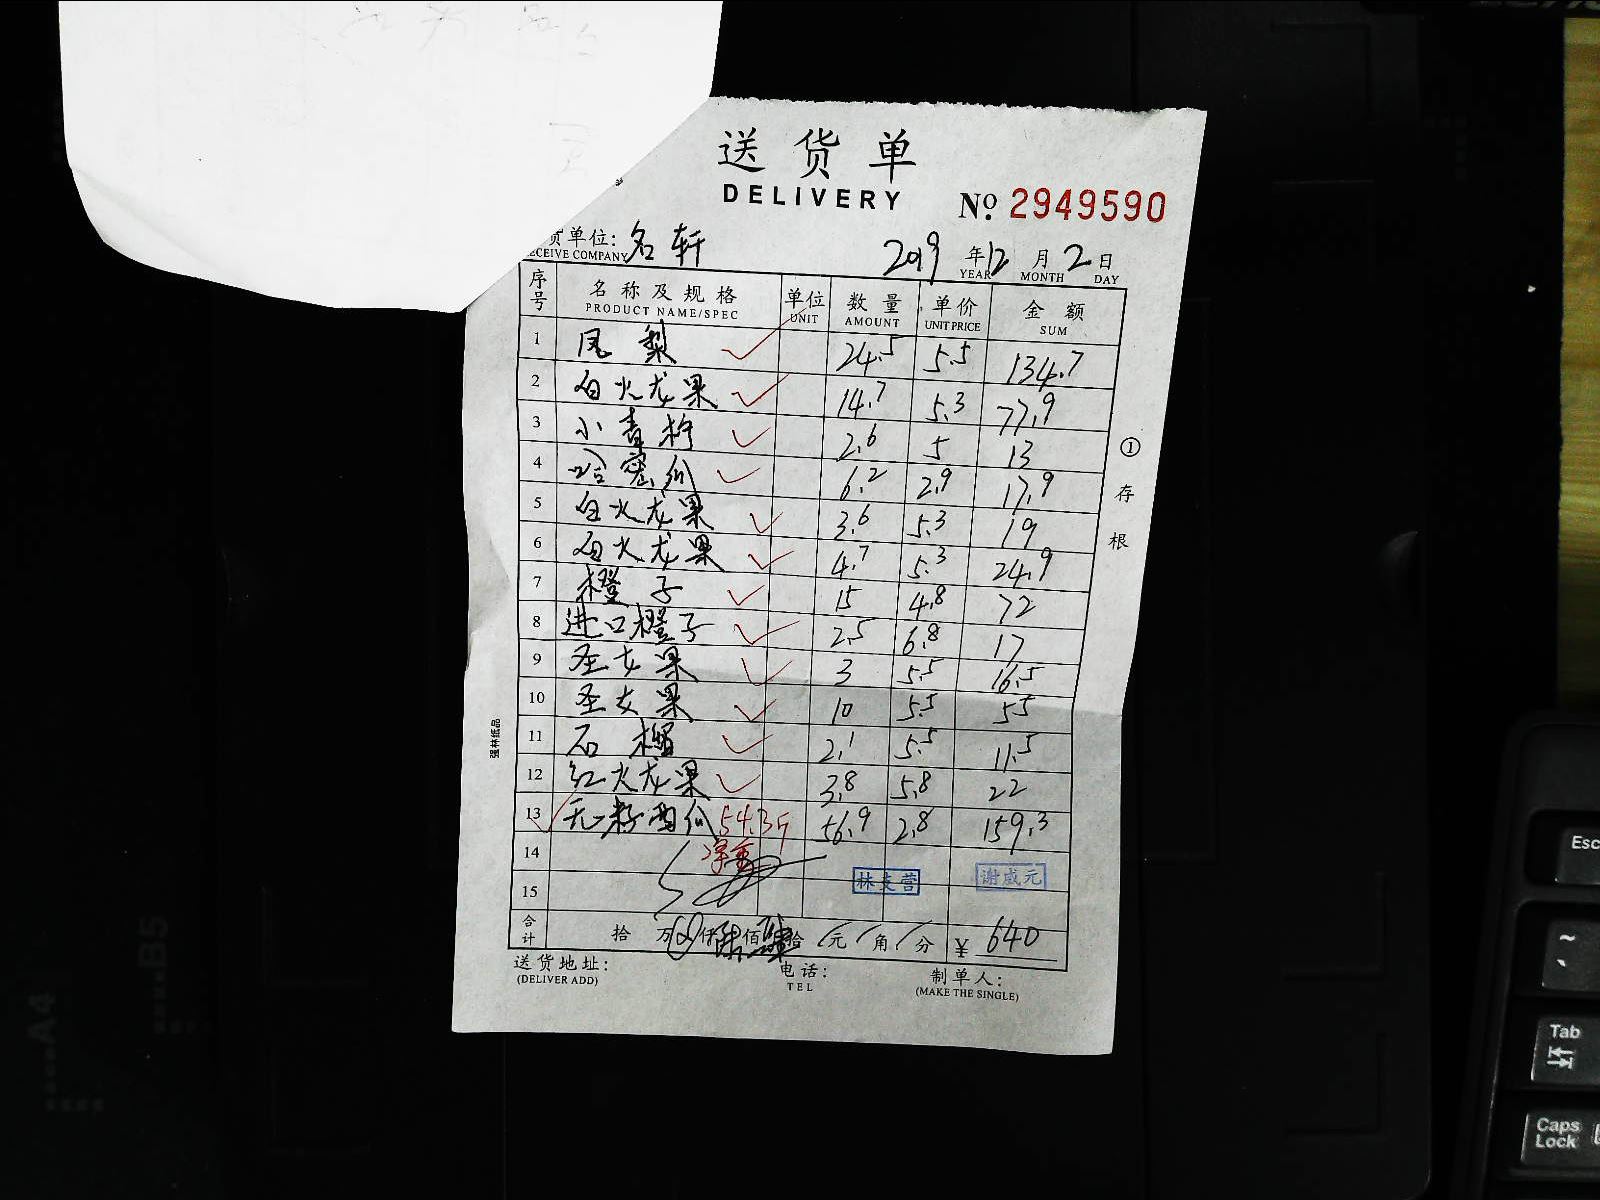 送货单
DELIVERY
No. 2949590
货单位: 名轩 2019 年 12 月 2 日
ECEIVE COMPANY YEAR MONTH DAY
序号 名称及规格 单位 数量 单价 金额
PRODUCT NAME/SPEC UNIT AMOUNT UNIT PRICE SUM
1 凤梨 24.5 5.5 134.7
2 白火龙果 14.7 5.3 77.9
3 小青柠 2.6 5 13
4 哈密瓜 6.2 2.9 17.9
5 白火龙果 3.6 5.3 19
6 白火龙果 4.7 5.3 24.9
7 橙子 15 4.8 72
8 进口橙子 2.5 6.8 17
9 圣女果 3 5.5 16.5
10 圣女果 10 5.5 55
11 石榴 2.1 5.5 11.5
12 红火龙果 3.8 5.8 22
13 无籽西瓜 54.3斤 56.9 2.8 159.3
14 净重
林支营 谢成元
15
合计 拾 万 仟 佰 拾 元 角 分 ¥ 640
送货地址: 电话: 制单人:
(DELIVER ADD) TEL (MAKE THE SINGLE)
①存根
强林纸品
B5
A4
Esc
~
Tab
Caps Lock